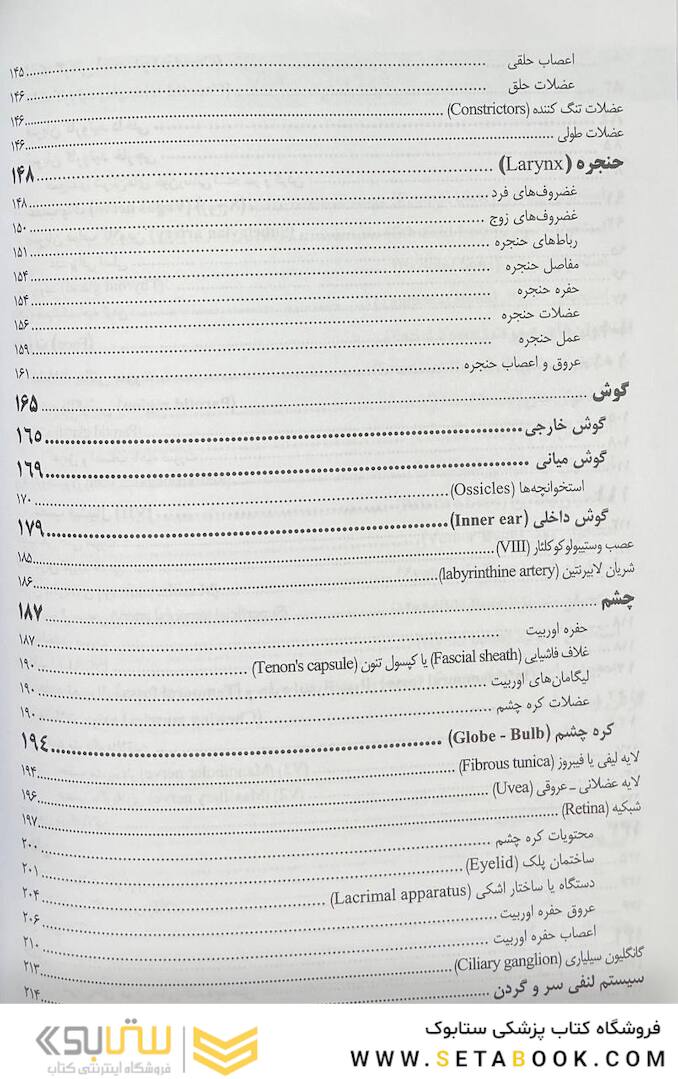 اعصاب حلقی ........ ۱۴۵
عضلات حلق ........ ۱۴۶
عضلات تنگ کننده (Constrictors) ........ ۱۴۶
عضلات طولی ........ ۱۴۶
حنجره (Larynx) ........ ۱۴۸
غضروف‌های فرد ........ ۱۴۸
غضروف‌های زوج ........ ۱۵۰
رباط‌های حنجره ........ ۱۵۱
مفاصل حنجره ........ ۱۵۴
حفره حنجره ........ ۱۵۴
عضلات حنجره ........ ۱۵۶
عمل حنجره ........ ۱۵۹
عروق و اعصاب حنجره ........ ۱۶۱
گوش ........ ۱۶۵
گوش خارجی ........ ۱۶۵
گوش میانی ........ ۱۶۹
استخوانچه‌ها (Ossicles) ........ ۱۷۰
گوش داخلی (Inner ear) ........ ۱۷۹
عصب وستیبولوکوکلئار (VIII) ........ ۱۸۵
شریان لابیرنتین (labyrinthine artery) ........ ۱۸۶
چشم ........ ۱۸۷
حفره اوربیت ........ ۱۸۷
غلاف فاشیایی (Fascial sheath) یا کپسول تنون (Tenon's capsule) ........ ۱۹۰
لیگامان‌های اوربیت ........ ۱۹۰
عضلات کره چشم ........ ۱۹۰
کره چشم (Globe - Bulb) ........ ۱۹۴
لایه لیفی یا فیبروز (Fibrous tunica) ........ ۱۹۴
لایه عضلانی - عروقی (Uvea) ........ ۱۹۶
شبکیه (Retina) ........ ۱۹۷
محتویات کره چشم ........ ۲۰۰
ساختمان پلک (Eyelid) ........ ۲۰۱
دستگاه یا ساختار اشکی (Lacrimal apparatus) ........ ۲۰۴
عروق حفره اوربیت ........ ۲۰۶
اعصاب حفره اوربیت ........ ۲۱۰
گانگلیون سیلیاری (Ciliary ganglion) ........ ۲۱۳
سیستم لنفی سر و گردن ........ ۲۱۴
فروشگاه کتاب پزشکی ستابوک
WWW.SETABOOK.COM
ستابوک
فروشگاه اینترنتی کتاب